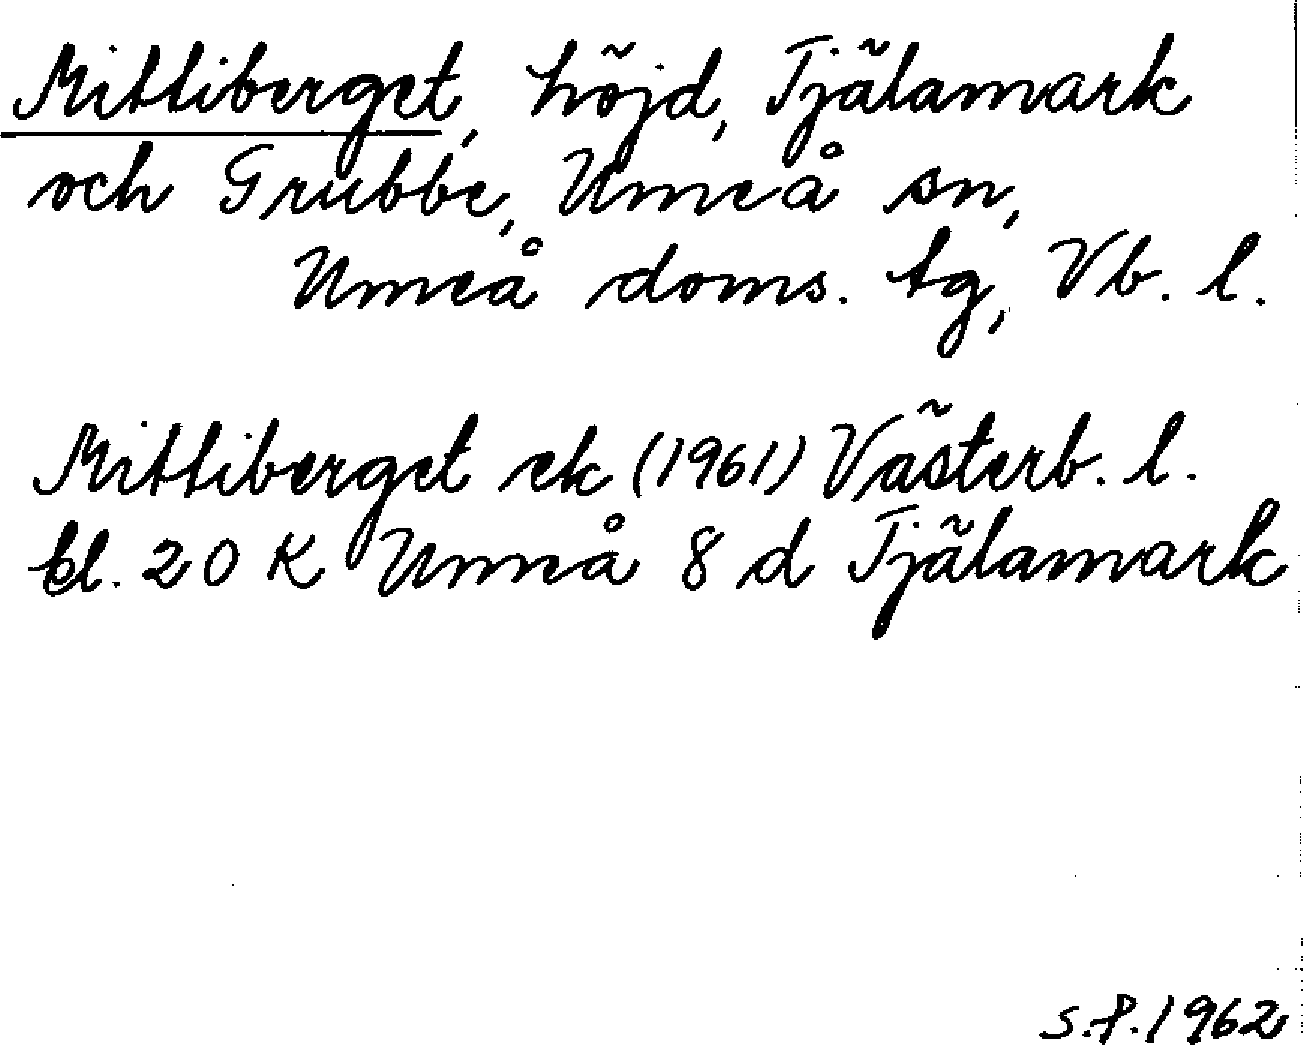 Mittiberget, höjd, Tjälamark
och Grubbe, Umeå sn,
Umeå doms. tg, Vb. l.
Mittiberget ek (1961) Västerb. l.
kl. 20 K Umeå 8 d Tjälamark
S.P. 1962